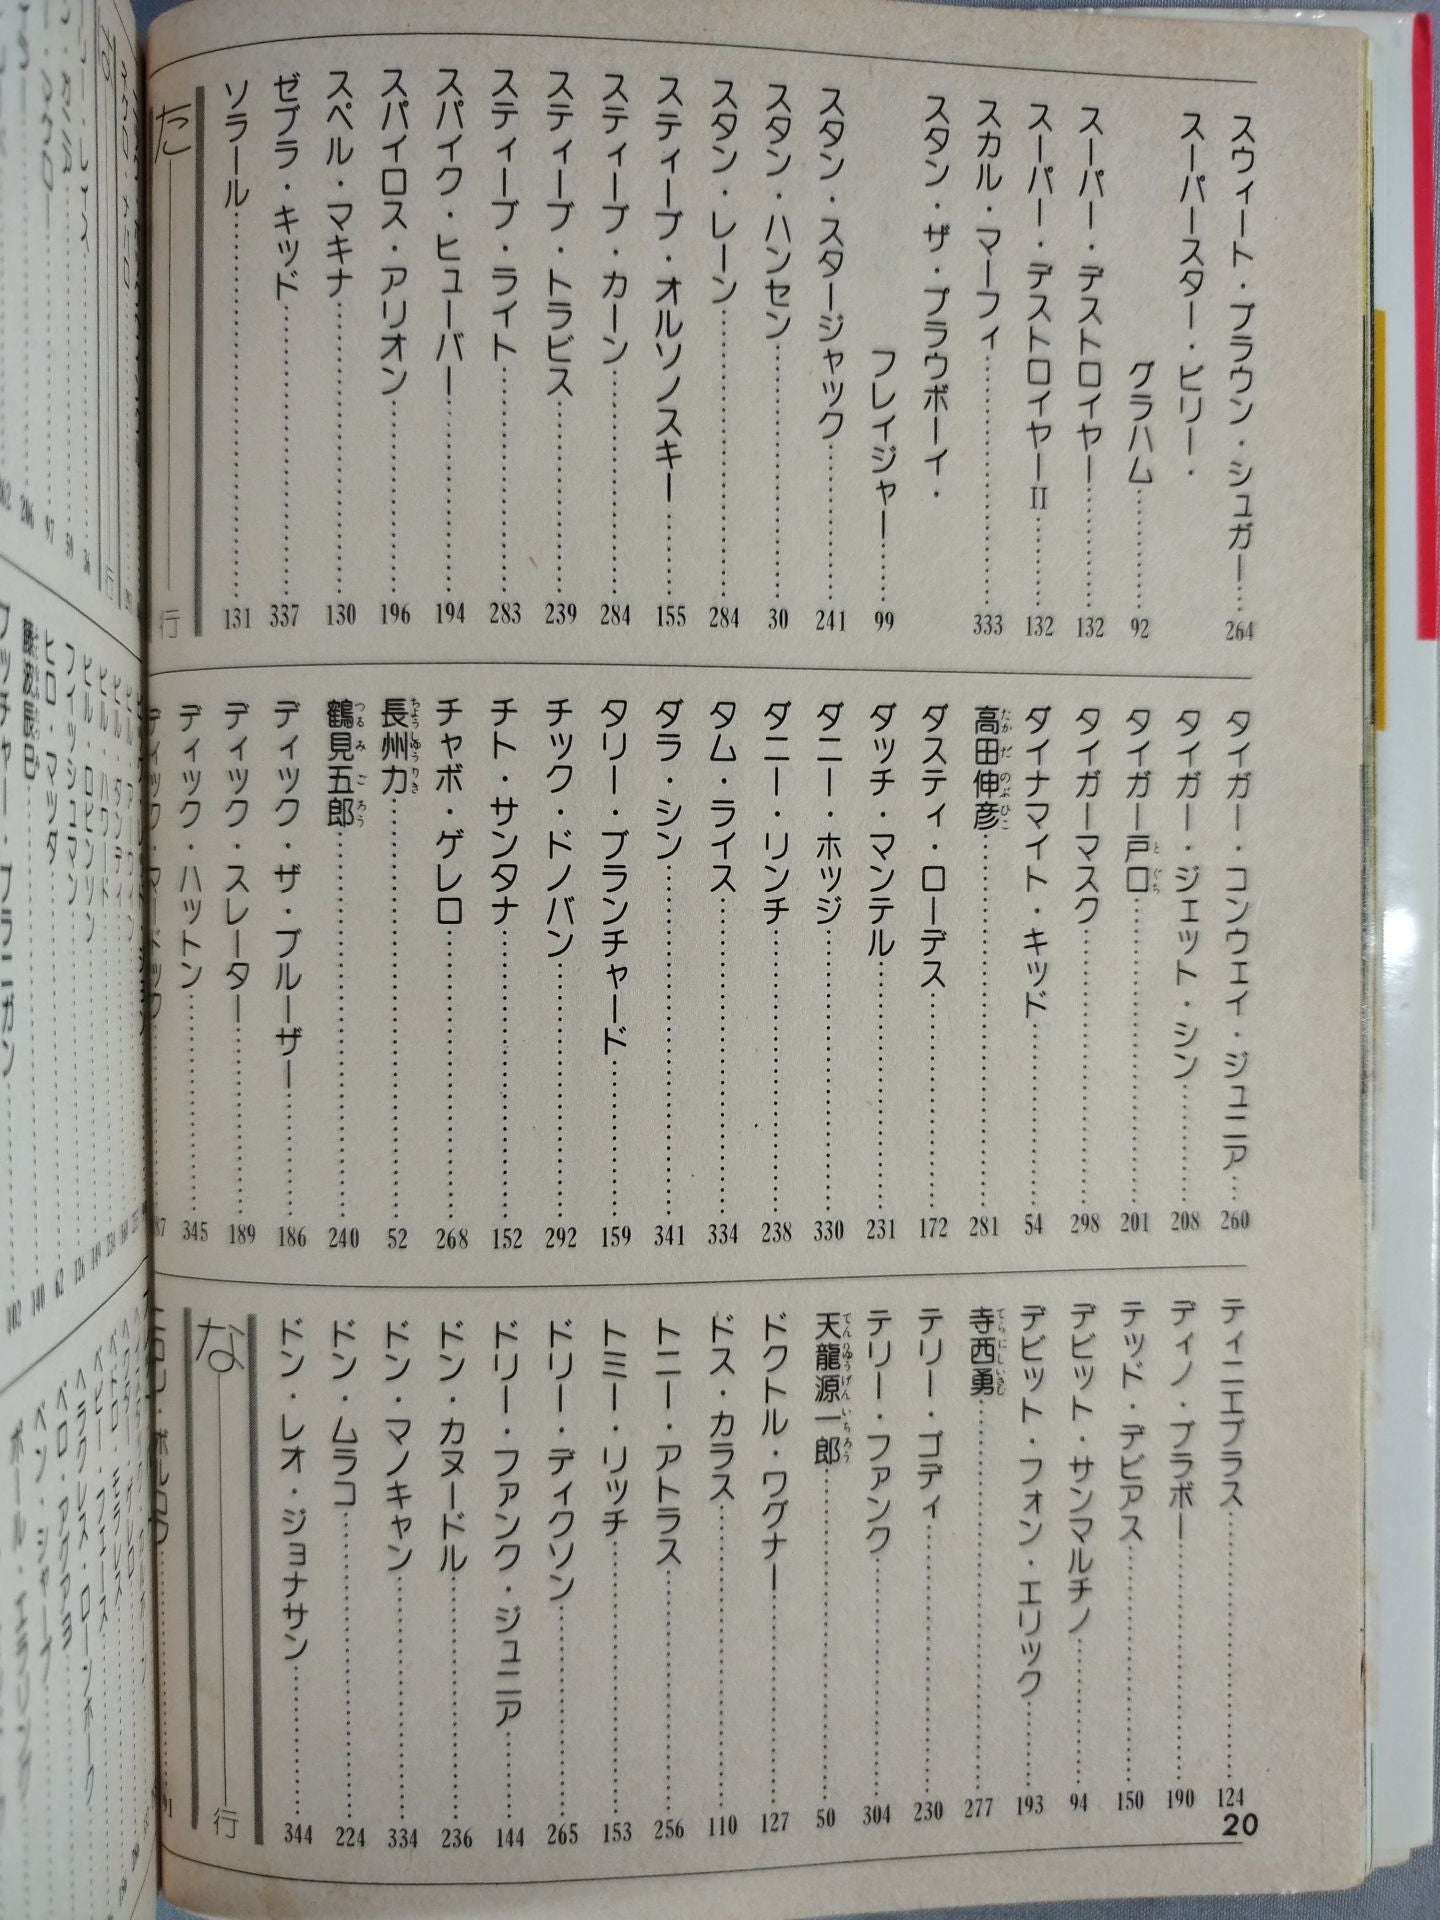 スウィート・ブラウン・シュガー……264
スーパースター・ビリー・
グラハム………92
スーパー・デストロイヤー………132
スーパー・デストロイヤーII………132
スカル・マーフィ………333
スタン・ザ・プラウボーイ・
フレイジャー………99
スタン・スタージャック………241
スタン・ハンセン………30
スタン・レーン………284
スティーブ・オルソノスキー………155
スティーブ・カーン………284
スティーブ・トラビス………239
スティーブ・ライト………283
スパイク・ヒューバー………194
スパイロス・アリオン………196
スペル・マキナ………130
ゼブラ・キッド………337
ソラール………131
た行
タイガー・コンウェイ・ジュニア……260
タイガー・ジェット・シン………208
タイガー戸口………201
タイガーマスク………298
ダイナマイト・キッド………54
高田伸彦………281
ダスティ・ローデス………172
ダッチ・マンテル………231
ダニー・ホッジ………330
ダニー・リンチ………238
タム・ライス………334
ダラ・シン………341
タリー・ブランチャード………159
チック・ドノバン………292
チト・サンタナ………152
チャボ・ゲレロ………268
長州力………52
鶴見五郎………240
ディック・ザ・ブルーザー………186
ディック・スレーター………189
ディック・ハットン………345
ディック・マードック………87
ティニエブラス………124
ディノ・ブラボー………190
テッド・デビアス………150
デビット・サンマルチノ………94
デビット・フォン・エリック………193
寺西勇………277
テリー・ゴディ………230
テリー・ファンク………304
天龍源一郎………50
ドクトル・ワグナー………127
ドス・カラス………110
トニー・アトラス………256
トミー・リッチ………153
ドリー・ディクソン………265
ドリー・ファンク・ジュニア………144
ドン・カヌードル………236
ドン・マノキャン………334
ドン・ムラコ………224
ドン・レオ・ジョナサン………344
な行
20
フィッシュマン
ヒロ・マツダ
藤波辰巳
ブッチャー・ブラニガン